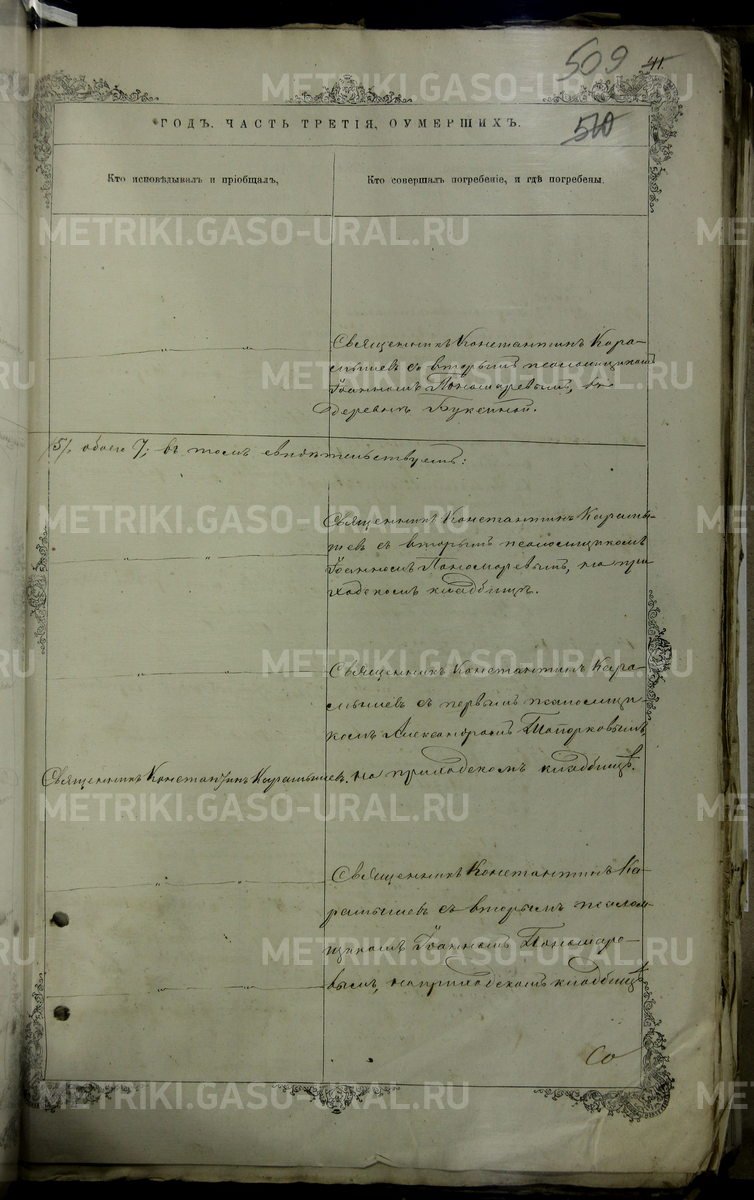 509 41
510
ГОДЪ. ЧАСТЬ ТРЕТІЯ, О УМЕРШИХЪ.
Кто исповѣдывалъ и пріобщалъ,
Кто совершалъ погребеніе, и гдѣ погребены.
Священникъ Константинъ Кара-
мышевъ съ вторымъ псаломщикомъ
Іоанномъ Пономаревымъ, въ
деревнѣ Буксиной.
5/ обоего 7; въ томъ свидѣтельствуемъ:
Священникъ Константинъ Карамы-
шевъ съ вторымъ псаломщикомъ
Іоанномъ Пономаревымъ, на при
ходскомъ кладбищѣ.
Священникъ Константинъ Кара-
мышевъ съ первымъ псаломщи-
комъ Александромъ Топорковымъ
Священникъ Константинъ Карамышевъ. на приходскомъ кладбищѣ.
Священникъ Константинъ Ка-
рамышевъ съ вторымъ псалом-
щикомъ Іоанномъ Пономаре-
вымъ, на приходскомъ кладбищѣ
Со
METRIKI.GASO-URAL.RU